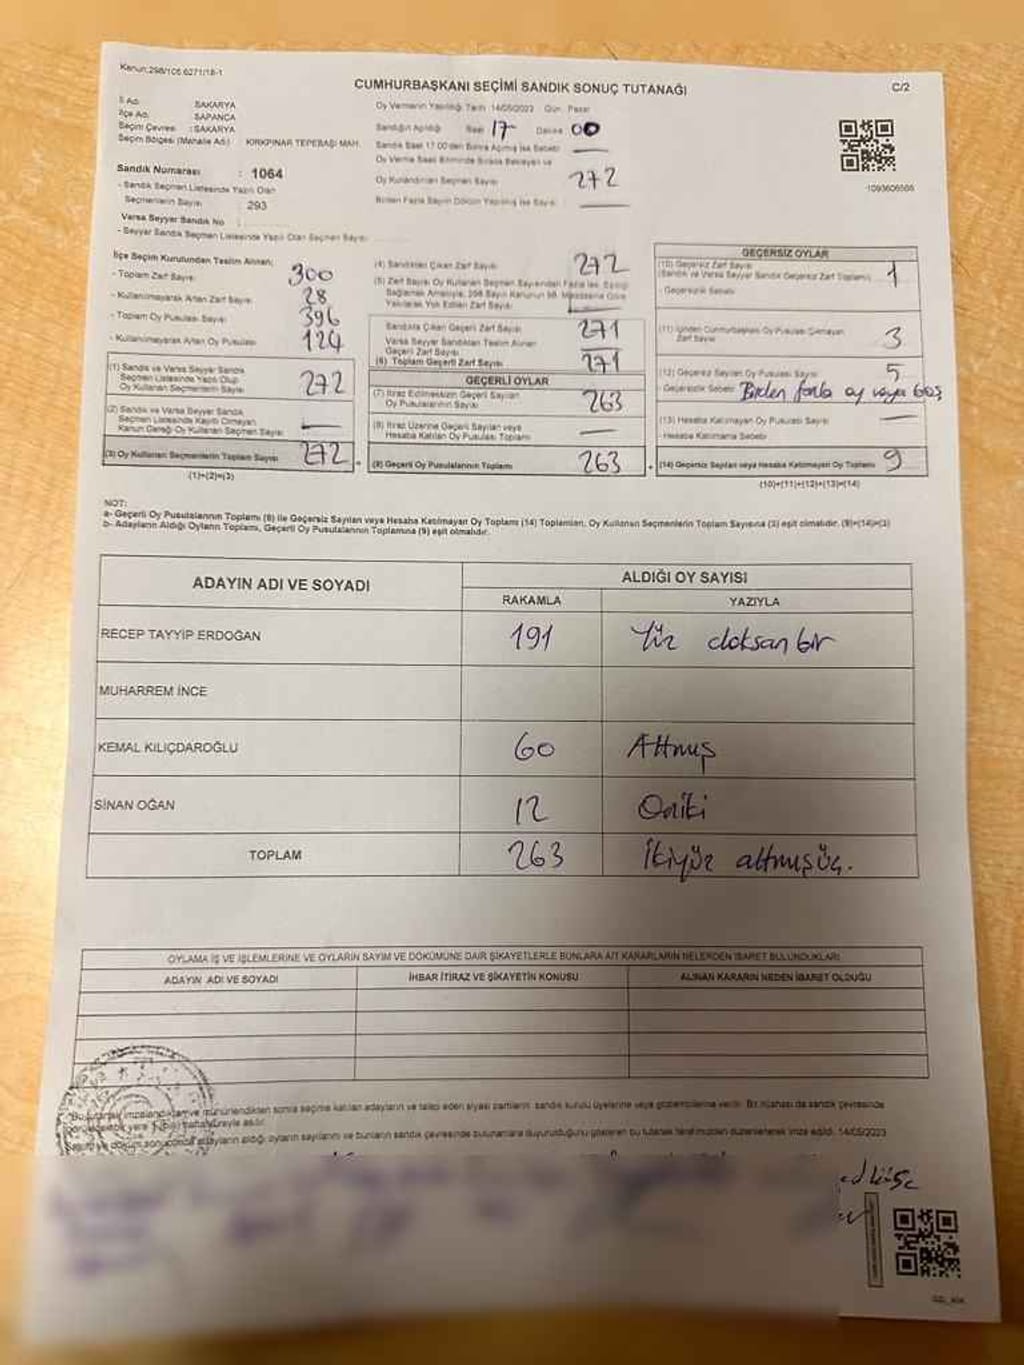 Kanun:298/105 6271/18-1
CUMHURBAŞKANI SEÇİMİ SANDIK SONUÇ TUTANAĞI
C/2
İl Adı: SAKARYA
İlçe Adı: SAPANCA
Seçim Çevresi :SAKARYA
Seçim Bölgesi (Mahalle Adı): KIRKPINAR TEPEBAŞI MAH.
Sandık Numarası : 1064
- Sandık Seçmen Listesinde Yazılı Olan
Seçmenlerin Sayısı : 293
Varsa Seyyar Sandık No
- Seyyar Sandık Seçmen Listesinde Yazılı Olan Seçmen Sayısı
Oy Vermenin Yapıldığı Tarih 14/05/2023 Gün: Pazar
Sandığın Açıldığı Saat 17 Dakika 00
Sandık Saat 17.00'den Sonra Açılmış İse Sebebi
Oy Verme Saati Bitiminde Sırada Bekleyen ve
Oy Kullandırılan Seçmen Sayısı 272
Birden Fazla Sayım Döküm Yapılmış İse Sayısı
1093606566
İlçe Seçim Kurulundan Teslim Alınan;
- Toplam Zarf Sayısı 300
- Kullanılmayarak Artan Zarf Sayısı 28
- Toplam Oy Pusulası Sayısı 396
- Kullanılmayarak Artan Oy Pusulası 124
(1) Sandık ve Varsa Seyyar Sandık
Seçmen Listesinde Yazılı Olup
Oy Kullanan Seçmenlerin Sayısı 272
(2) Sandık ve Varsa Seyyar Sandık
Seçmen Listesinde Kayıtlı Olmayan
Kanun Gereği Oy Kullanan Seçmen Sayısı
(3) Oy Kullanan Seçmenlerin Toplam Sayısı 272
(1)+(2)=(3)
(4) Sandıktan Çıkan Zarf Sayısı 272
(5) Zarf Sayısı Oy Kullanan Seçmen Sayısından Fazla İse, Eşitliği
Sağlamak Amacıyla, 298 Sayılı Kanunun 98. Maddesine Göre
Yakılarak Yok Edilen Zarf Sayısı
Sandıkta Çıkan Geçerli Zarf Sayısı 271
Varsa Seyyar Sandıktan Teslim Alınan
Geçerli Zarf Sayısı
(6) Toplam Geçerli Zarf Sayısı 271
GEÇERLİ OYLAR
(7) İtiraz Edilmeksizin Geçerli Sayılan
Oy Pusulalarının Sayısı 263
(8) İtiraz Üzerine Geçerli Sayılan veya
Hesaba Katılan Oy Pusulası Toplamı
(9) Geçerli Oy Pusulalarının Toplamı 263
GEÇERSİZ OYLAR
(10) Geçersiz Zarf Sayısı
(Sandık ve Varsa Seyyar Sandık Geçersiz Zarf Toplamı) 1
- Geçersizlik Sebebi
(11) İçinden Cumhurbaşkanı Oy Pusulası Çıkmayan
Zarf Sayısı 3
(12) Geçersiz Sayılan Oy Pusulası Sayısı 5
- Geçersizlik Sebebi Birden fazla oy veya boş
(13) Hesaba Katılmayan Oy Pusulası Sayısı
- Hesaba Katılmama Sebebi
(14) Geçersiz Sayılan veya Hesaba Katılmayan Oy Toplamı 9
(10)+(11)+(12)+(13)=(14)
NOT:
a- Geçerli Oy Pusulalarının Toplamı (9) ile Geçersiz Sayılan veya Hesaba Katılmayan Oy Toplamı (14) Toplamları, Oy Kullanan Seçmenlerin Toplam Sayısına (3) eşit olmalıdır. (9)+(14)=(3)
b- Adayların Aldığı Oyların Toplamı, Geçerli Oy Pusulalarının Toplamına (9) eşit olmalıdır.
ADAYIN ADI VE SOYADI
ALDIĞI OY SAYISI
RAKAMLA YAZIYLA
RECEP TAYYİP ERDOĞAN 191 Yüz doksan bir
MUHARREM İNCE
KEMAL KILIÇDAROĞLU 60 Altmış
SİNAN OĞAN 12 Oniki
TOPLAM 263 İkiyüz altmışüç.
OYLAMA İŞ VE İŞLEMLERİNE VE OYLARIN SAYIM VE DÖKÜMÜNE DAİR ŞİKAYETLERLE BUNLARA AİT KARARLARIN NELERDEN İBARET BULUNDUKLARI
ADAYIN ADI VE SOYADI İHBAR İTİRAZ VE ŞİKAYETİN KONUSU ALINAN KARARIN NEDEN İBARET OLDUĞU
"Bu tutanak imzalandıktan ve mühürlendikten sonra seçime katılan adayların ve talep eden siyasi partilerin sandık kurulu üyelerine veya gözlemcilerine verilir. Bir nüshası da sandık çevresinde
adayların aldığı oyların sayılarını ve bunların sandık çevresinde bulunanlara duyurulduğunu gösteren bu tutanak tarafımızdan düzenlenerek imza edildi. 14/05/2023